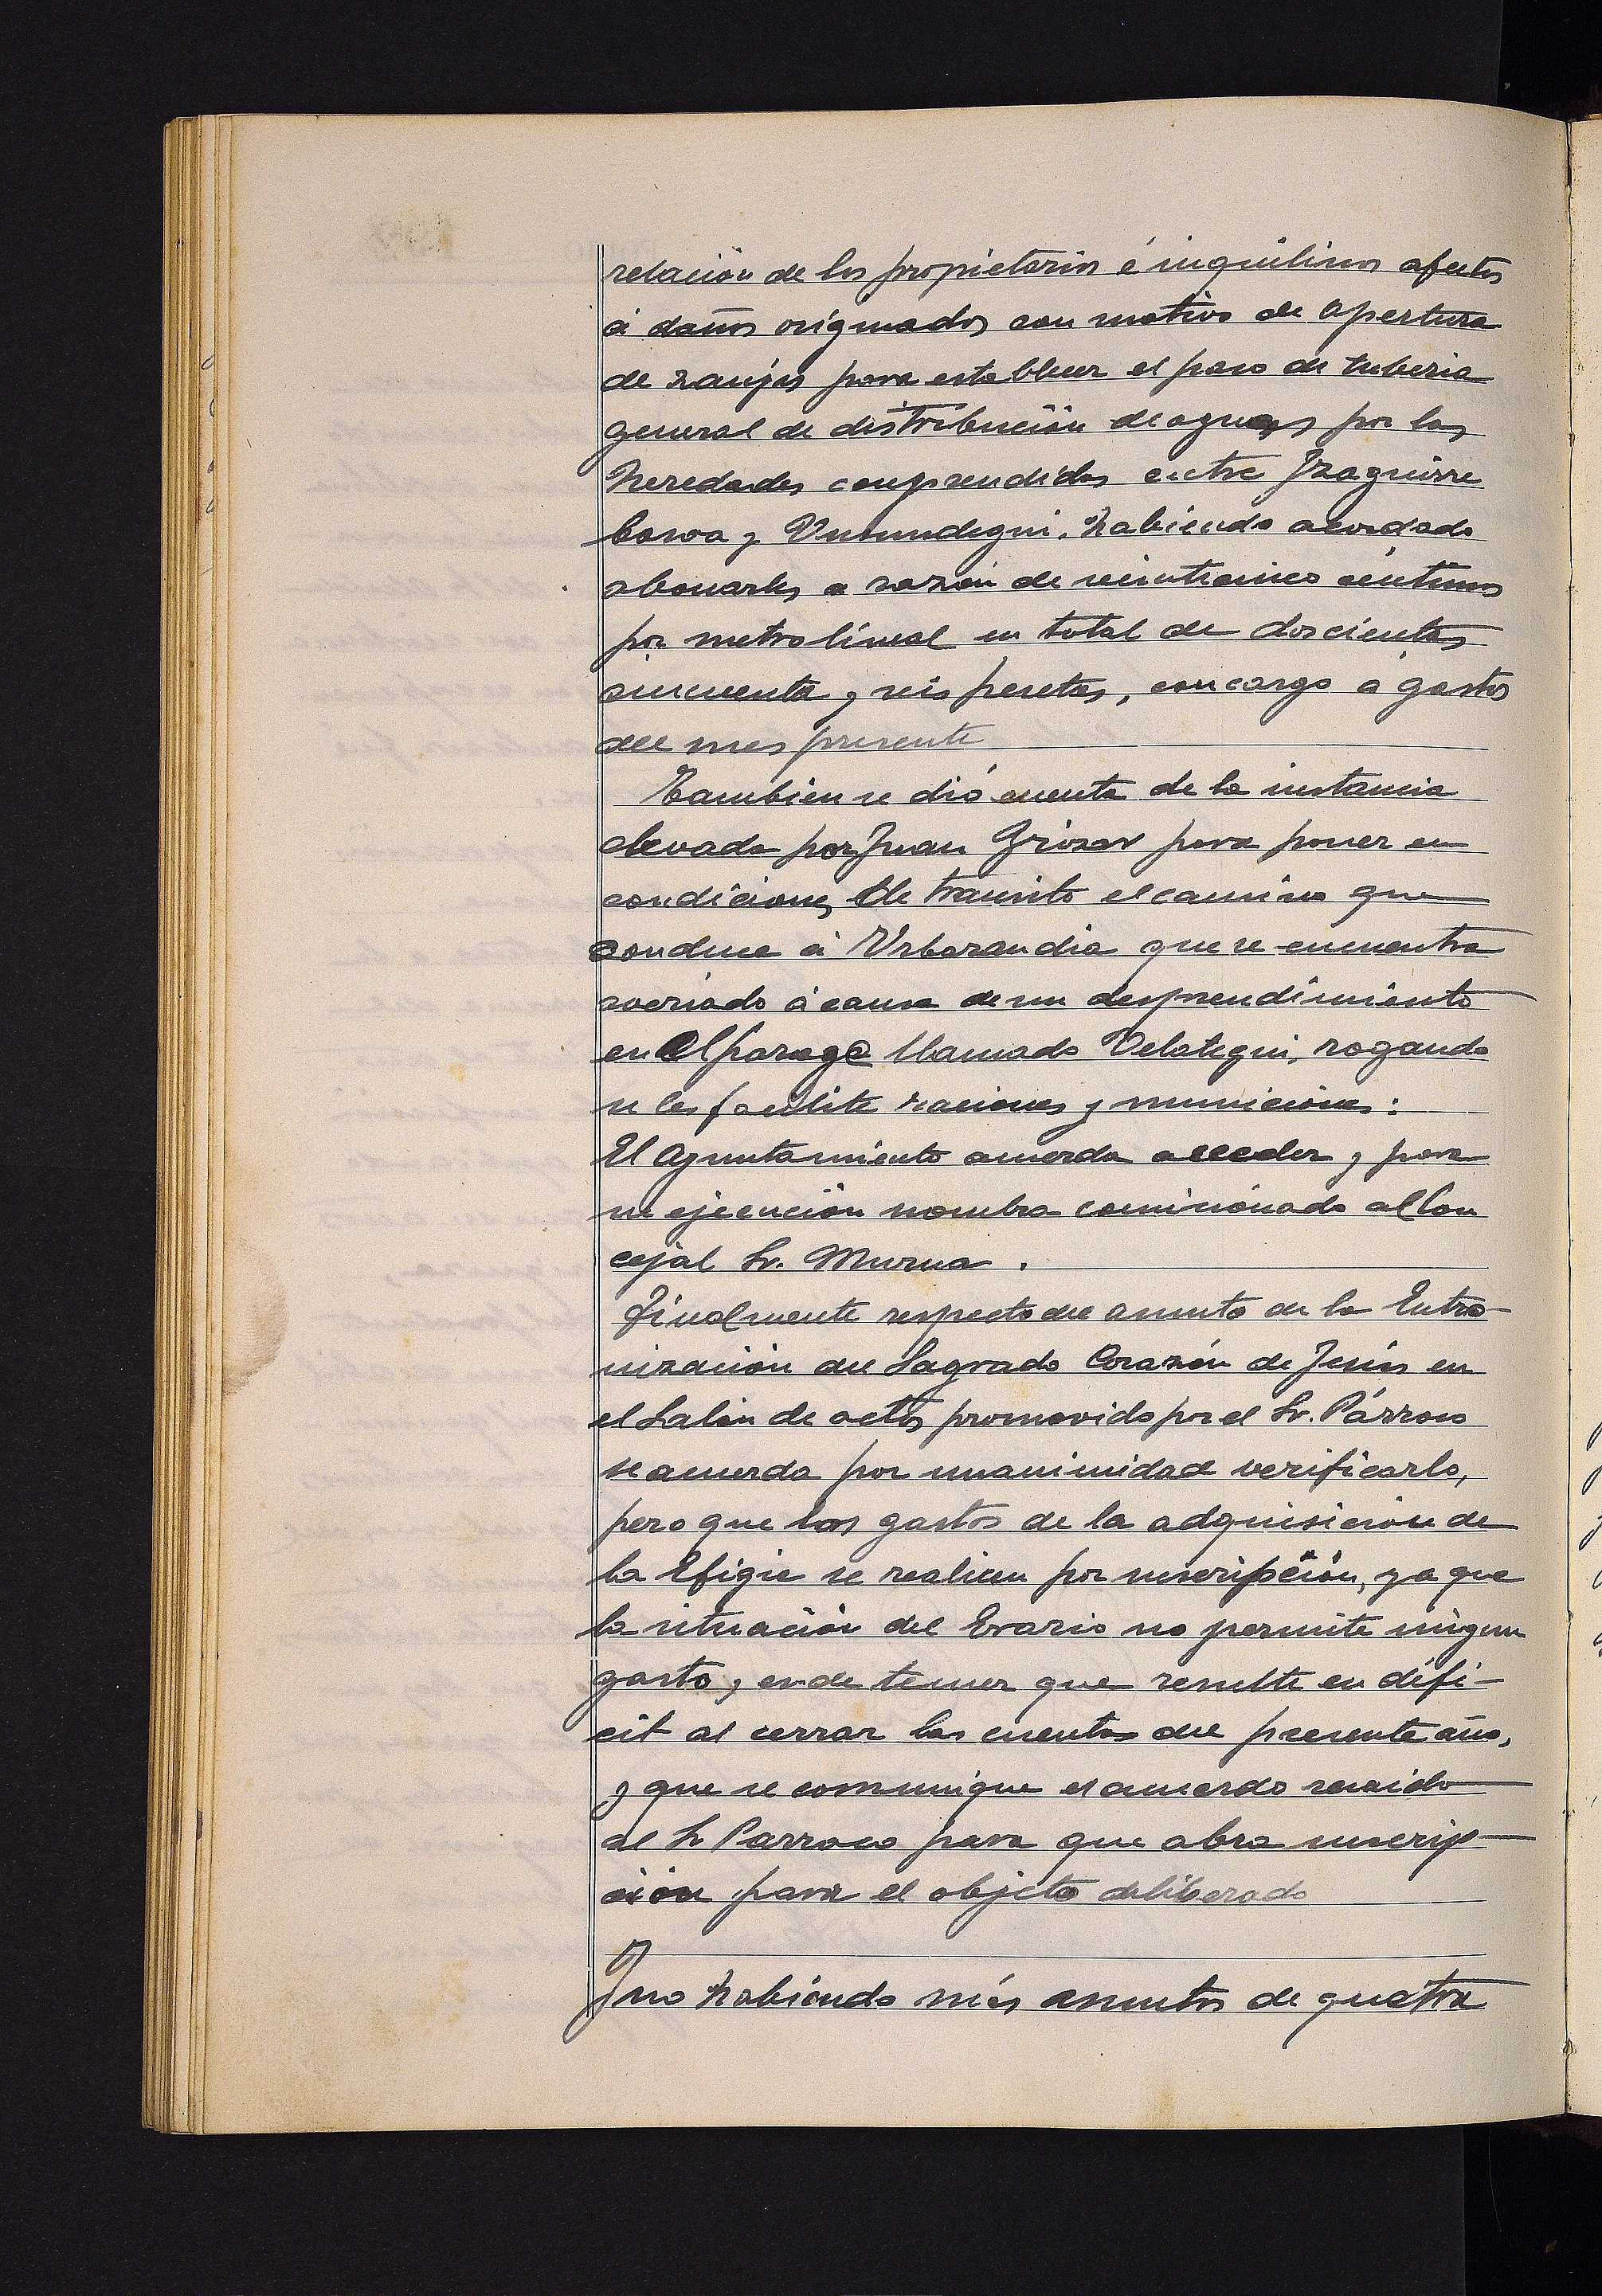 relación de los propietarios é inquilinos afectos
á daños originados con motivo de apertura
de zanjas para establecer el paso de tuberia
general de distribución de aguas por las
heredades comprendidas entre Izaguirre
basoa y habiendo acordado
abonarles a razón de veinticinco céntimos
por metro lineal en total de doscientas
cincuenta y seis pesetas, con cargo á gastos
del mes presente
Tambien se dió cuenta de la instancia
elevada por Juan para poner en
condiciones de transito el camino que
conduce á Urbarandia que se encuentra
averiado á causa de un desprendimiento
en el parage llamado Velategui, rogando
se les facilite raciones y municiones:
El Ayuntamiento acuerda acceder y para
su ejecución nombra comisionado al Con
cejal Sr. Murua.
Finalmente respecto del asunto de la Entro-
nización del Sagrado Corazón de Jesús en
el Salón de actos promovido por el Sr. Párroco
se acuerda por unanimidad verificarlo,
pero que los gastos de la adquisición de
la Efigie se realicen por suscripción, ya que
la situación del Erario no permite ningun
gasto, es de temer que resulte en défi-
cit al cerrar las cuentas del presente año,
y que se comunique el acuerdo recaido
al Sr Parroco para que abra suscrip-
ción para el objeto deliberado
Y no habiendo más asuntos de que tra